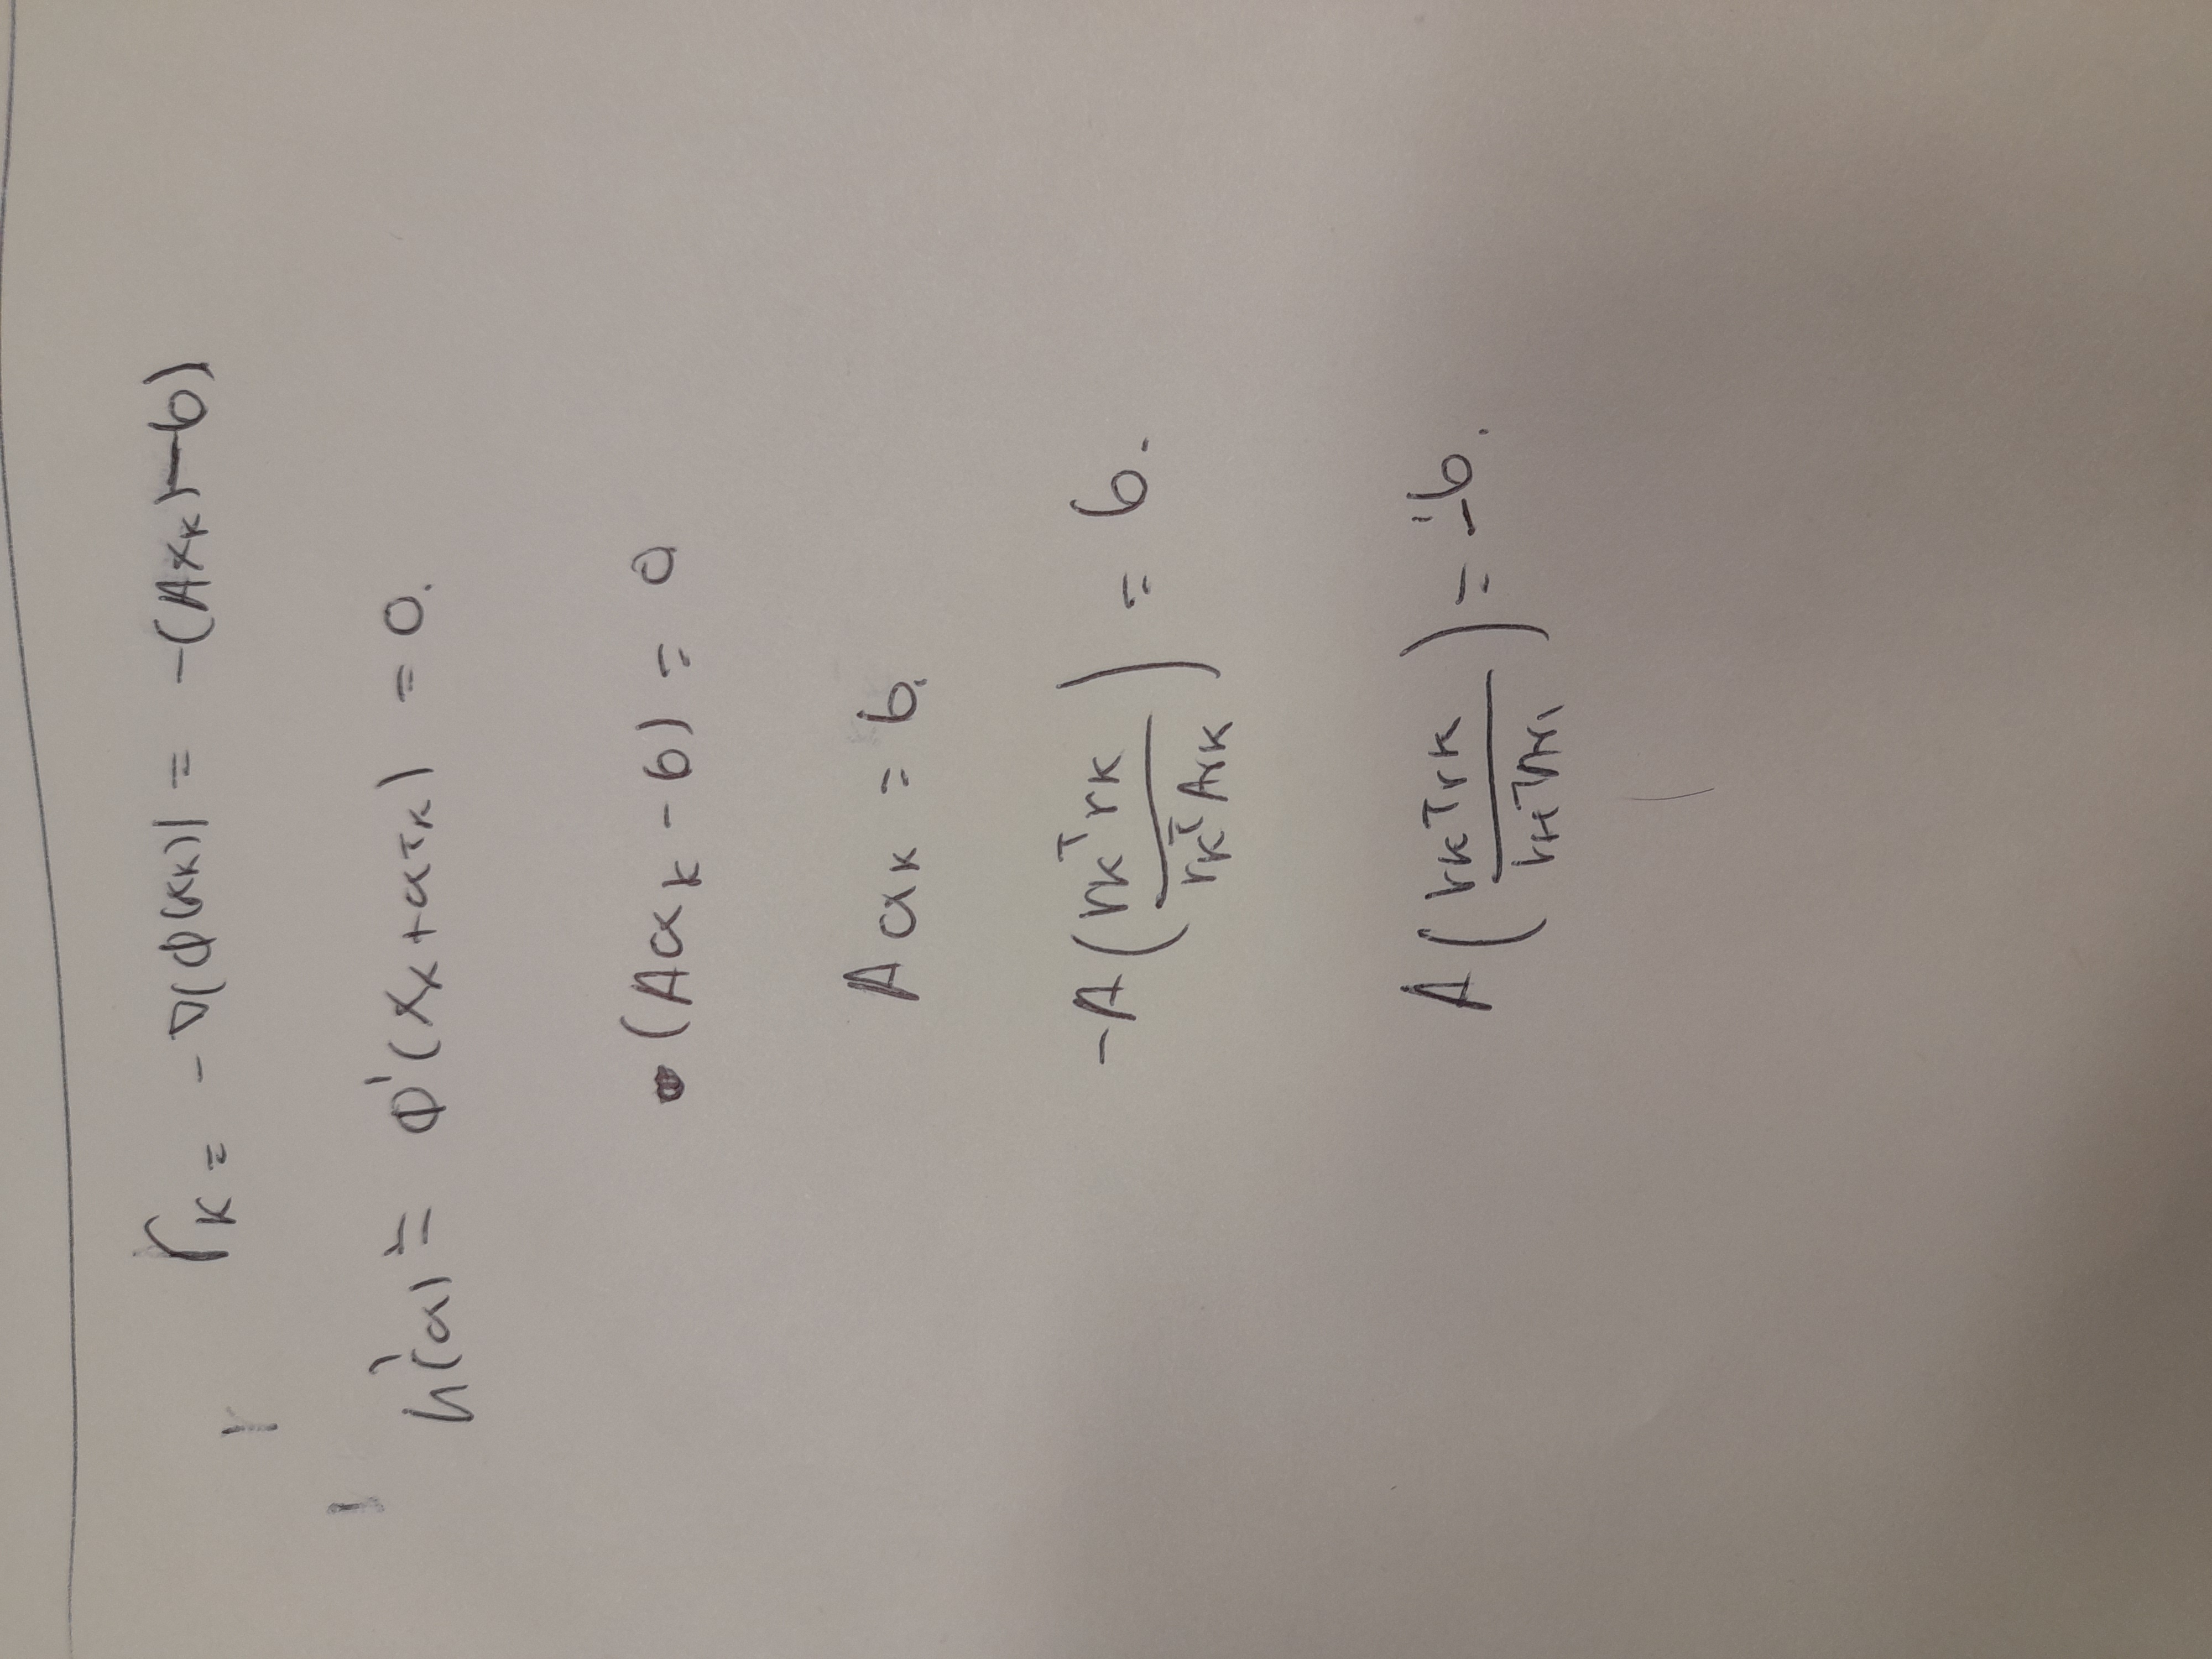 r_k = -∇(φ(x_k)) = -(Ax_k) - b)
h'(α) = φ'(x_k + αr_k) = 0.
(Aα_k - b) = 0
Aα_k = b.
-A(r_k^T r_k / r_k^T A r_k) = b.
A(r_k^T r_k / r_k^T A r_k) = -b.